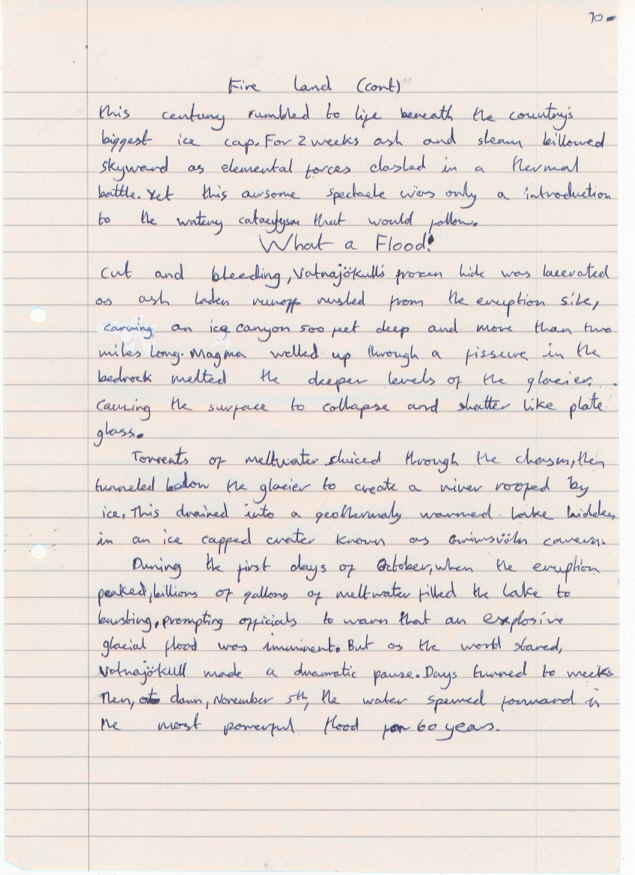 70
Fire Land (cont)
this century rumbled to life beneath the country's
biggest ice cap. For 2 weeks ash and steam billowed
skyward as elemental forces clashed in a thermal
battle. Yet this awsome spectacle was only a introduction
to the watery cataclysm that would follow.
What a Flood!
Cut and bleeding, Vatnajökull's frozen hide was lacerated
as ash laden runoff rushed from the eruption site,
carving an icy canyon 500 feet deep and more than two
miles long. Magma welled up through a fissure in the
bedrock melted the deeper levels of the glacier.
Causing the surface to collapse and shatter like plate
glass.
Torrents of meltwater sluiced through the chasm, then
tunneled below the glacier to create a river roofed by
ice. This drained into a geothermaly warmed lake hidden
in an ice capped crater known as Grimsvötn
During the first days of October, when the eruption
peaked, billions of gallons of meltwater filled the lake to
bursting, prompting officials to warn that an explosive
glacial flood was imminent. But as the world stared,
Vatnajökull made a dramatic pause. Days turned to weeks
Then, at dawn, November 5th, the water spewed forward in
the most powerful flood for 60 years.